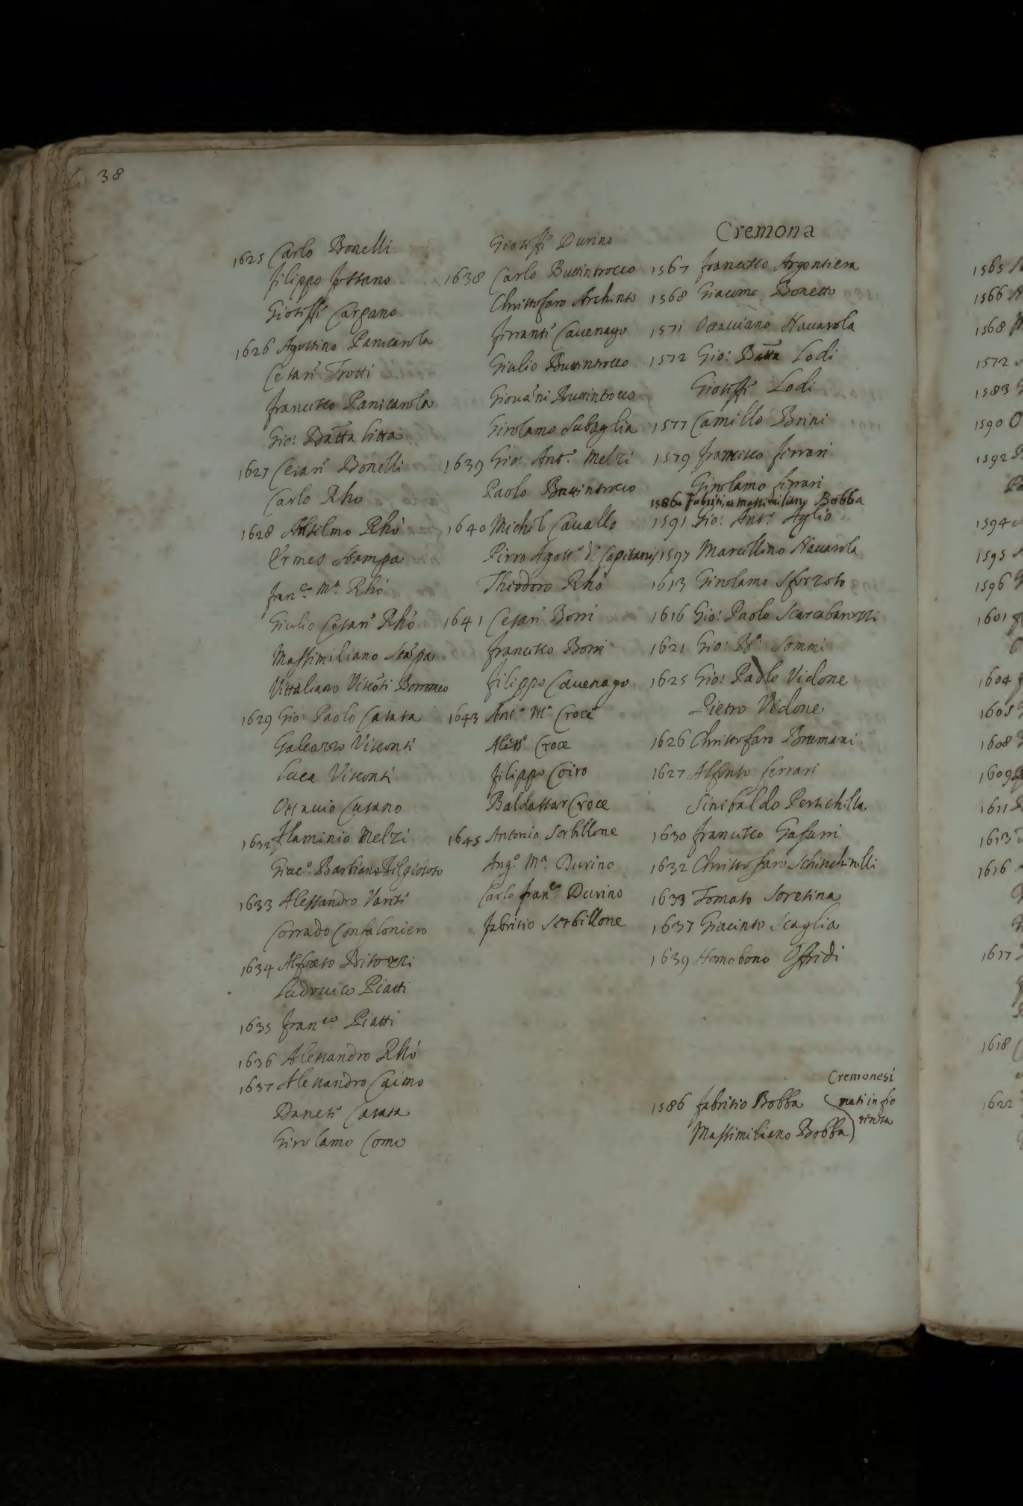 38
1625 Carlo Bonelli
Filippo Fossano
Gioseffo Cargano
1626 Agostino Panicarola
Cesare Trotti
Francesco Panicarola
Gio: Batta Litta
1627 Cesare Bonelli
Carlo Rho
1628 Anselmo Rhò
Ermes Stampa
Fran.co M.a Rhò
Giulio Cesare Rhò
Massimiliano Stãpa
Vittaliano Viscõti Borromeo
1629 Gio: Paolo Casata
Galeazzo Visconti
Luca Visconti
Ottavio Cusano
1632 Flaminio Melzi
Giac.o Barbiano
1633 Alessandro
Corrado Confaloniero
1634 Alfonso
Ludovico Piatti
1635 Fran.co Piatti
1636 Alessandro Rhò
1637 Alessandro Caimo
Danese Casata
Girolamo Como
Gioseffo Durino
1638 Carlo Buttintrocco
Christoforo Archinto
Ferrante Cavenago
Giulio Buttintrocco
Giovãni Buttintrocco
Girolamo Subaglia
1639 Gio: Ant.o Melzi
Paolo Buttintrocco
1640 Michel Cavallo
Pirro Agost.o Capitani
Theodoro Rhò
1641 Cesare Borri
Francesco Borri
Filippo Cavenago
1643 Ant.o M.a Croce
Aless.o Croce
Filippo Coiro
Baldassar Croce
1645 Antonio Sorbillone
Ang.o M.a Durino
Carlo Fran.co Durino
Fabritio Serbillone
Cremona
1567 Francesco Argentiera
1568 Giacomo Bonetto
1571 Ottaviano Navarola
1572 Gio: Batta Lodi
Gioseffo Lodi
1577 Camillo Brini
1579 Francesco Ferrari
Girolamo Ferrari
1586 Fabritio e Massimiliano Bobba
1591 Gio: Ant.o Aglio
1597 Marcellino Navarola
1613 Girolamo Sforzoto
1616 Gio: Paolo
1621 Gio: B.a Sommi
1625 Gio: Paolo Vidone
Pietro Vidone
1626 Christoforo Brumani
1627 Alfonso Ferrari
Sinibaldo Persichilla
1630 Francesco Gafurri
1632 Christoforo Schinchinelli
1633 Tomaso Soresina
1637 Giacinto Scaglia
1639 Homobono Offredi
Cremonesi
1586 Fabritio Bobba nati in fio
renza
Massimiliano Bobba
1565
1566
1568
1572
1583
1590
1592
1594
1595
1596
1601
1604
1605
1608
1609
1611
1613
1616
1617
1618
1622